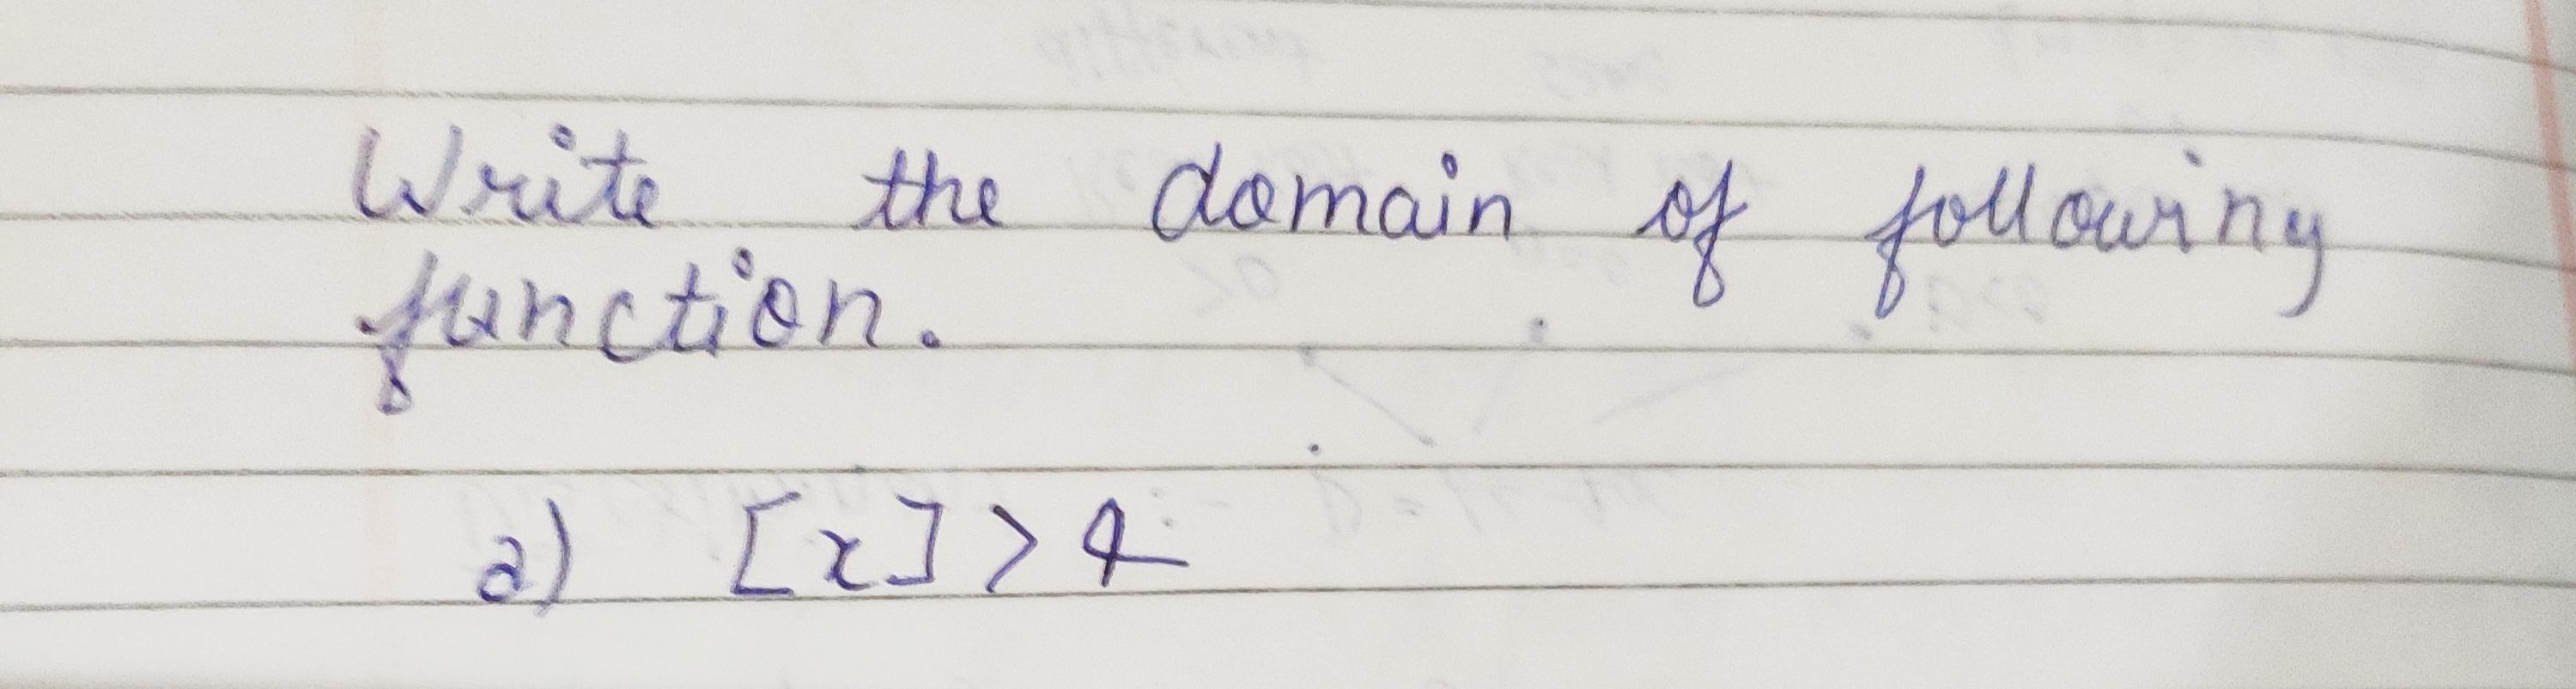 Write the domain of following
function.
a) [x] > 4